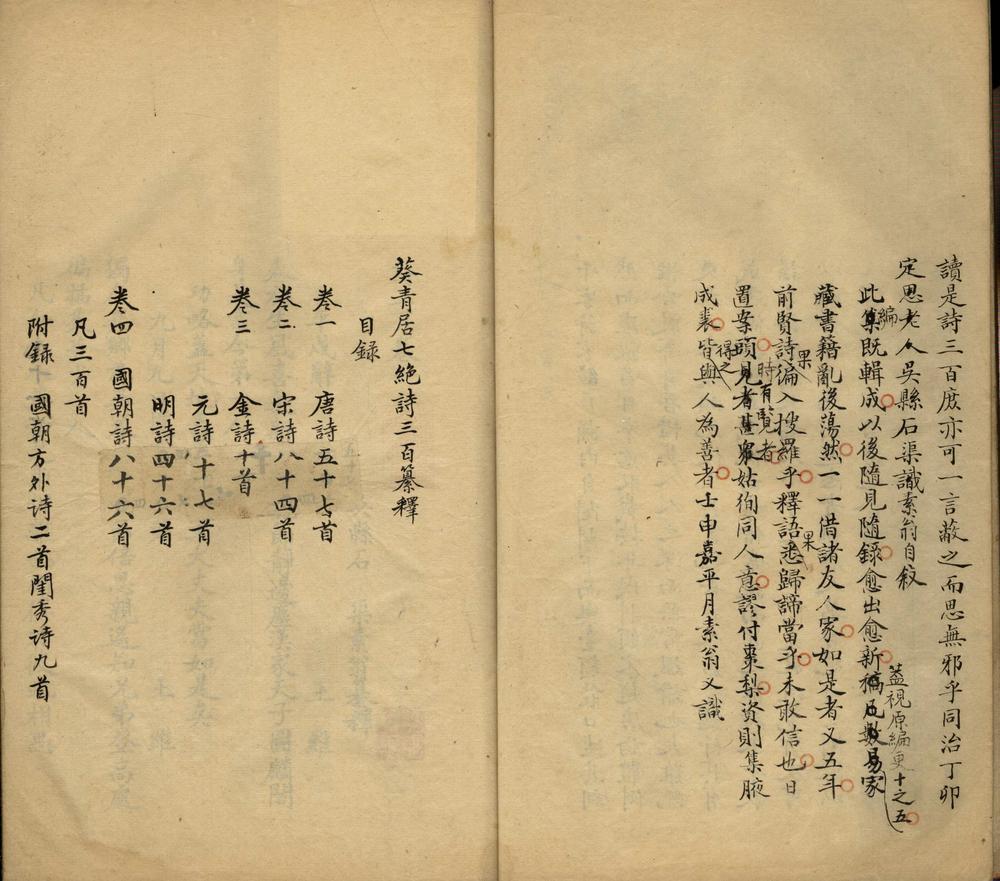 讀是詩三百庶亦可一言蔽之而思無邪乎同治丁卯
定思老人吳縣石渠識素翁自敘
此集既輯成以後隨見隨錄愈出愈新稿凡數易家
編
蓋視原編更十之五
藏書籍亂後蕩然一一借諸友人家如是者又五年
前賢詩徧入搜羅乎釋語悉歸諦當乎未敢信也日
果
果
置案頭見者甚眾姑徇同人意謬付棗梨資則集腋
時有賢者
成裘皆與人為善者士申嘉平月素翁又識
得之
葵青居七絕詩三百纂釋
目録
卷一 唐詩五十七首
卷二 宋詩八十四首
卷三 金詩十首
元詩十七首
明詩四十六首
卷四 國朝詩八十六首
凡三百首
附錄 國朝方外詩二首閨秀詩九首